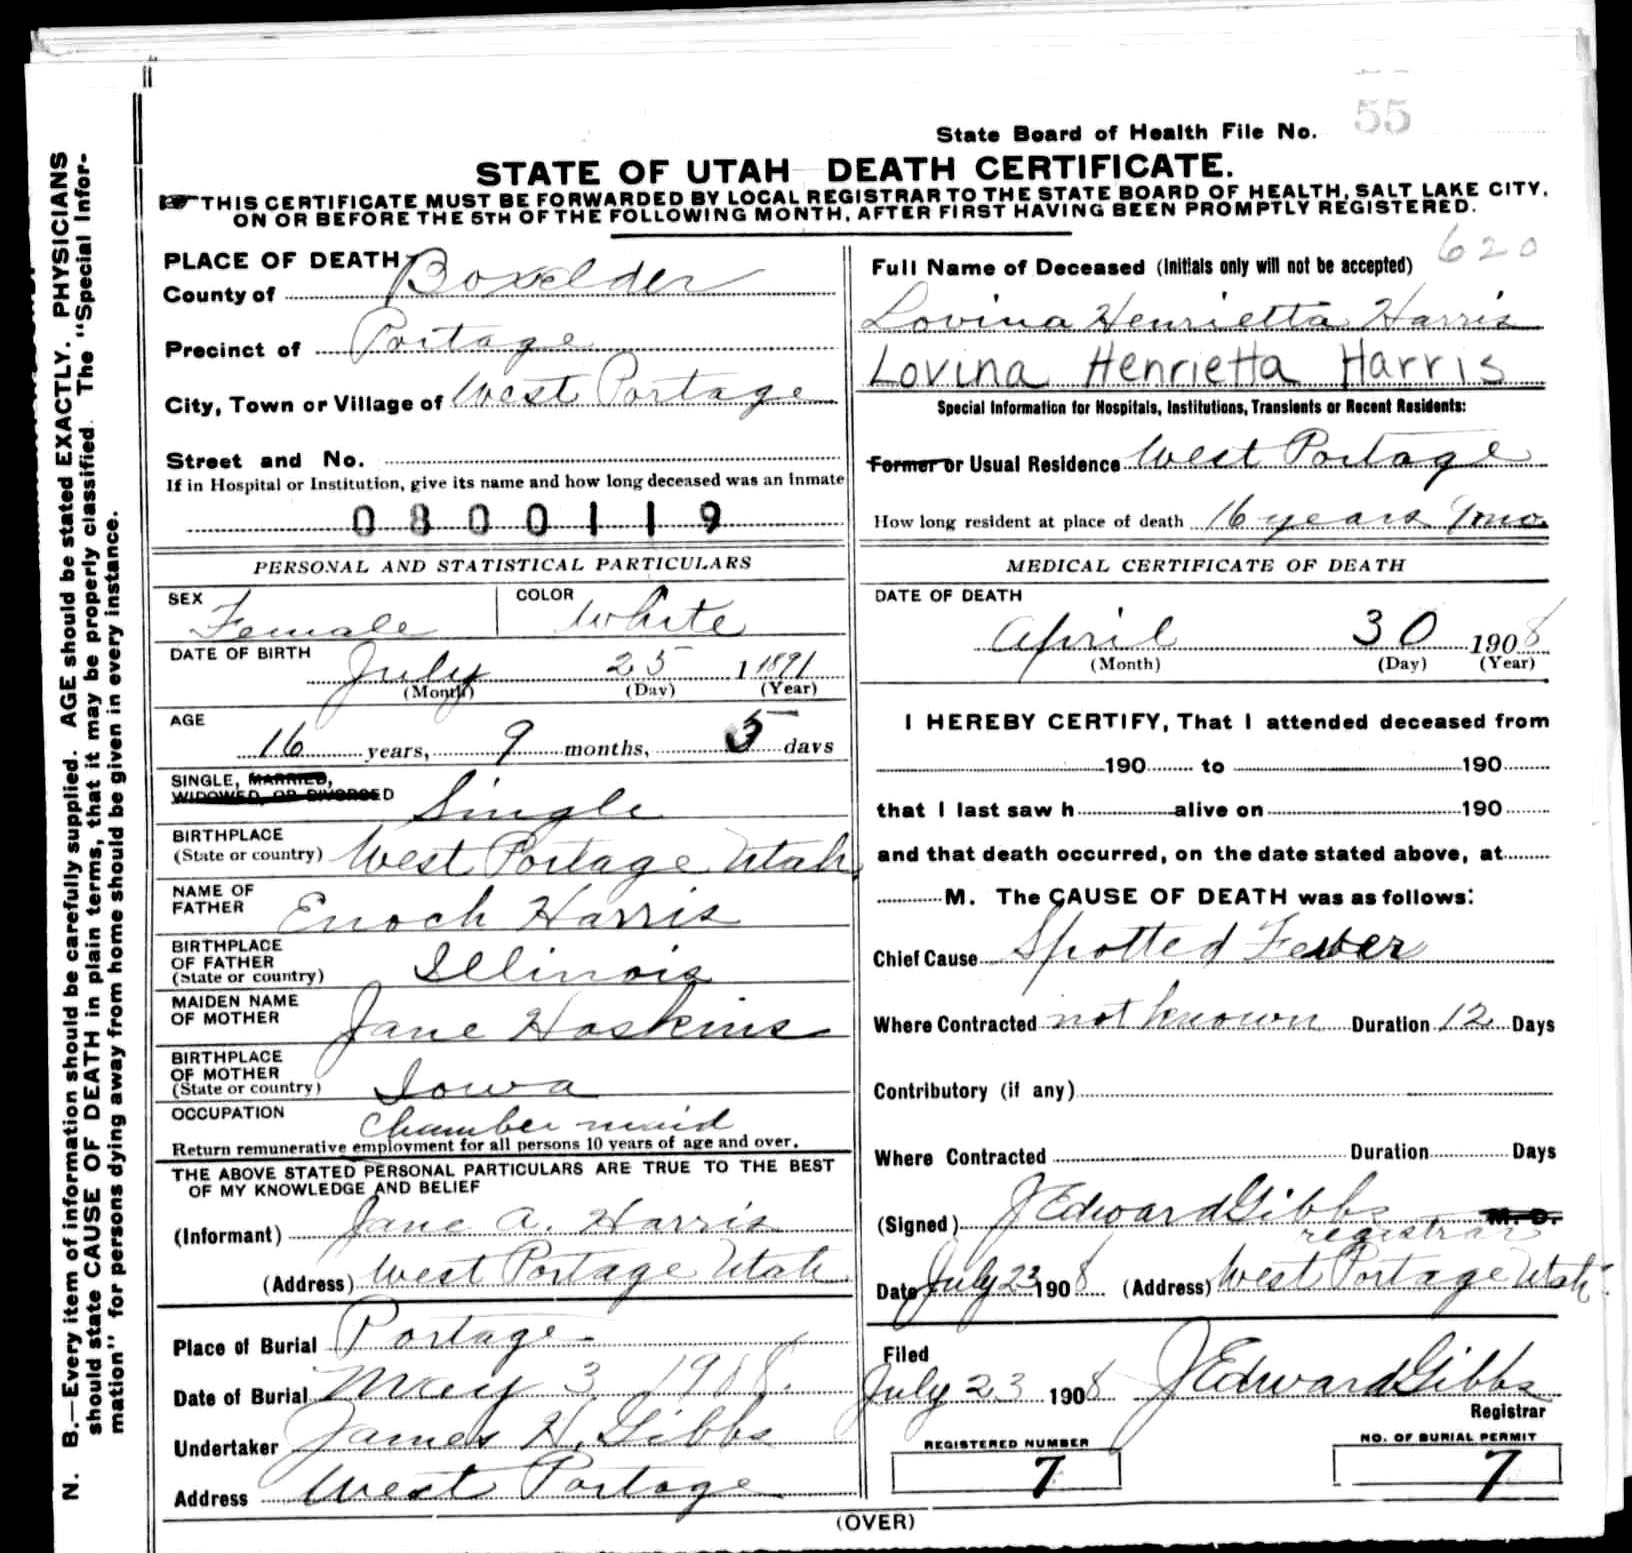 State Board of Health File No. 55
STATE OF UTAH DEATH CERTIFICATE.
THIS CERTIFICATE MUST BE FORWARDED BY LOCAL REGISTRAR TO THE STATE BOARD OF HEALTH, SALT LAKE CITY,
ON OR BEFORE THE 5TH OF THE FOLLOWING MONTH, AFTER FIRST HAVING BEEN PROMPTLY REGISTERED.
N. B.—Every item of information should be carefully supplied. AGE should be stated EXACTLY. PHYSICIANS
should state CAUSE OF DEATH in plain terms, that it may be properly classified. The "Special Infor-
mation" for persons dying away from home should be given in every instance.
PLACE OF DEATH
County of Boxelder
Precinct of Portage
City, Town or Village of West Portage
Street and No.
If in Hospital or Institution, give its name and how long deceased was an inmate
0800119
PERSONAL AND STATISTICAL PARTICULARS
SEX Female COLOR White
DATE OF BIRTH
July 25 1 1891
(Month) (Day) (Year)
AGE
16 years, 9 months, 5 days
SINGLE, MARRIED,
WIDOWED, OR DIVORCED Single
BIRTHPLACE
(State or country) West Portage Utah
NAME OF
FATHER Enoch Harris
BIRTHPLACE
OF FATHER
(State or country) Illinois
MAIDEN NAME
OF MOTHER Jane Hoskins
BIRTHPLACE
OF MOTHER
(State or country) Iowa
OCCUPATION Chamber maid
Return remunerative employment for all persons 10 years of age and over.
THE ABOVE STATED PERSONAL PARTICULARS ARE TRUE TO THE BEST
OF MY KNOWLEDGE AND BELIEF
(Informant) Jane A. Harris
(Address) West Portage Utah
Place of Burial Portage
Date of Burial May 3 1908.
Undertaker James H. Gibbs
Address West Portage
620
Full Name of Deceased (Initials only will not be accepted)
Lovina Henrietta Harris
Lovina Henrietta Harris
Special Information for Hospitals, Institutions, Transients or Recent Residents:
Former or Usual Residence West Portage
How long resident at place of death 16 years 9 mo.
MEDICAL CERTIFICATE OF DEATH
DATE OF DEATH
April 30 1908
(Month) (Day) (Year)
I HEREBY CERTIFY, That I attended deceased from
190 to 190
that I last saw h alive on 190
and that death occurred, on the date stated above, at
M. The CAUSE OF DEATH was as follows:
Chief Cause Spotted Fever
Where Contracted not known Duration 12 Days
Contributory (if any)
Where Contracted Duration Days
(Signed) J Edward Gibbs M. D.
registrar
Date July 23 1908 (Address) West Portage Utah
Filed
July 23 1908 J Edward Gibbs
Registrar
REGISTERED NUMBER
7
NO. OF BURIAL PERMIT
7
(OVER)